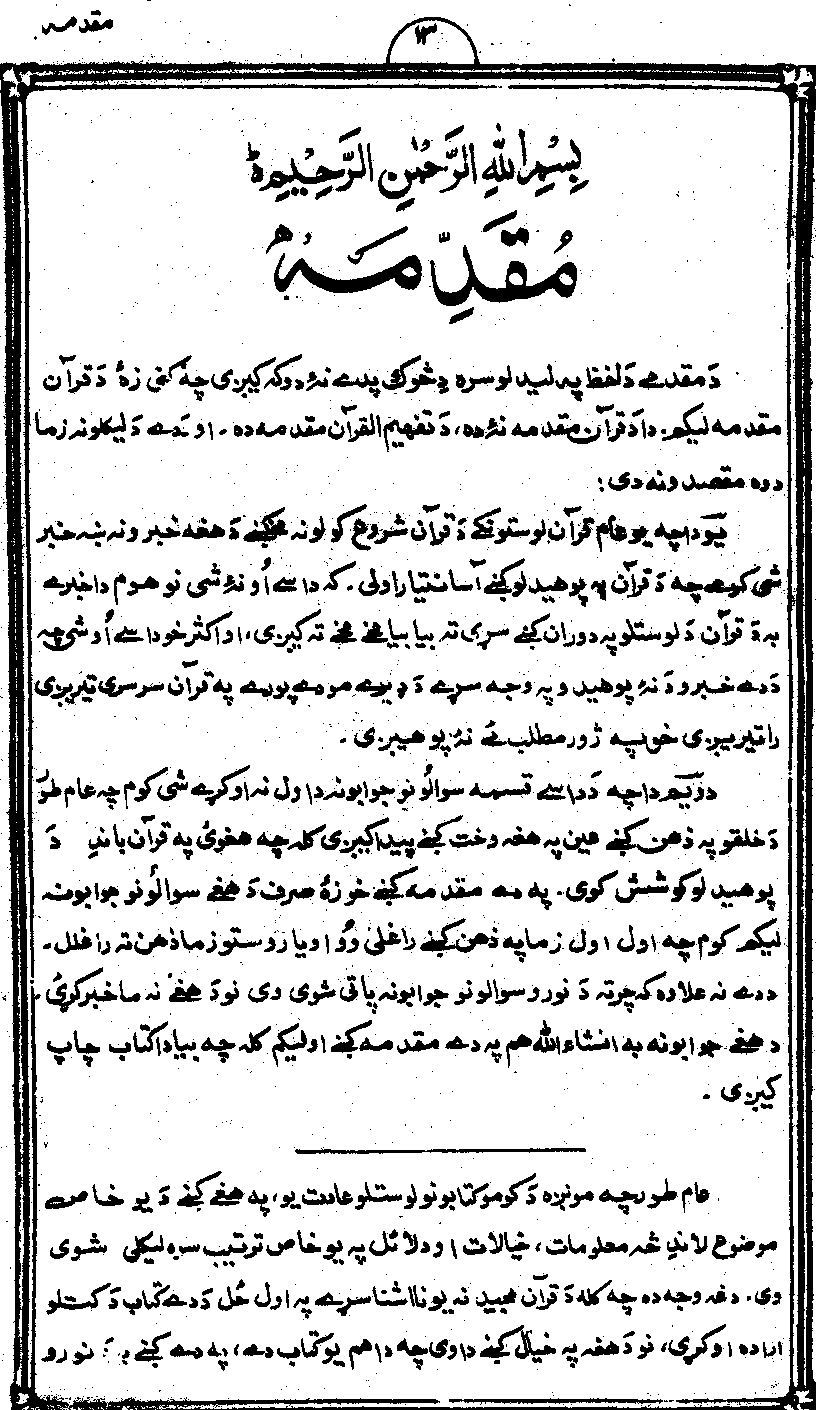 مقدمه
۱۳
بِسْمِ اللهِ الرَّحْمٰنِ الرَّحِيْمِ ط
مُقَدِّمَہ
دَ مقدمے دَ لفظ په لیدلو سره دِ څوک پدے نۀ دوکه کیږی چه ګنی زۀ دَ قرآن
مقدمه لیکم. دا دَ قرآن مقدمه نۀ ده، دَ تفهیم القرآن مقدمه ده۔ او دَدے دَ لیکلو نه زما
دوه مقصدونه دی:
یَو دا چه یو عام قرآن لوستونکے دَ قرآن شروع کولو نه مخکښے دَ هغه خبرو نه ښه خبر
شی کومے چه دَ قرآن په پوهیدلو کښے آسانتیا راولی۔ که داسے اُونۀ شی نو هوم دا خبرے
به دَ قرآن دَ لوستلو په دوران کښے سړی ته بیا بیا مخے مخے ته کیږی، او اکثر خو داسے اُوشی چه
دَدے خبرو دَ نۀ پوهیدو په وجه سړے دَ ډیرے مودے پورے په قرآن سرسری تیریږی
راتیریږی خو په ژور مطلب ئے نۀ پوهیږی ۔
دوَیَم دا چه دَ داسے قسمه سوالُونو جوابونه داول نه اوکړے شی کوم چه عام طَور
دَ خلقو په ذهن کښے عین په هغه وخت کښے پیدا کیږی کله چه هغوئ په قرآن باندِ دَ
پوهیدلو کوشش کوی. په دے مقدمه کښے خو زۀ صرف دَ هغے سوالُونو جوابونه
لیکم کوم چه اول اول زما په ذهن کښے راغلی وُو او یا روستو زما ذهن ته راغلل۔
ددے نه علاوه که چرته دَ نورو سوالونو جوابونه پاتی شوی وی نو دَ هغے نه ما خبر کړئ
د هغے جوابونه به انشاء الله هم په دے مقدمه کښے اولیکم کله چه بیا دا کتاب چاپ
کیږی ۔
عام طور چه مونږه دَ کومو کتابونو لوستلو عادت یو، په هغے کښے دَ یو خاص
موضوع لاندِ څه معلومات، خیالات او دلائل په یو خاص ترتیب سره لیکلی شوی
وی. دغه وجه ده چه کله دَ قرآن مجید نه یو نااشنا سړے په اول ځل دَدے کتاب دَ کتلو
اراده اوکړی، نو دَ هغه په خیال کښے دا وی چه دا هم یو کتاب دے، په دے کښے به دَ نورو